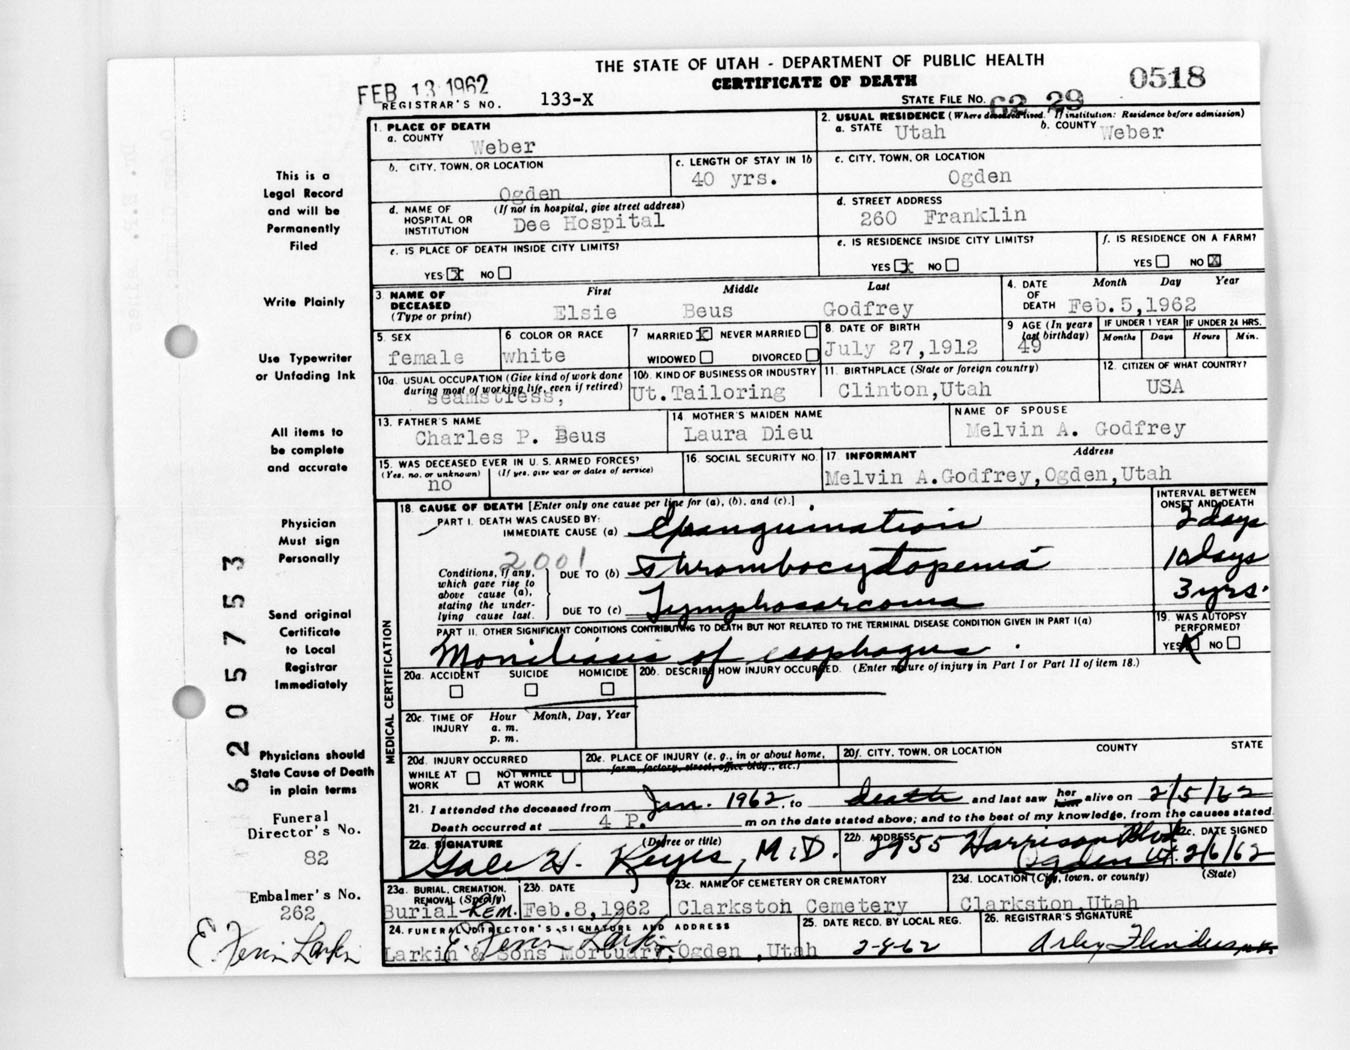 THE STATE OF UTAH - DEPARTMENT OF PUBLIC HEALTH
CERTIFICATE OF DEATH
0518
FEB 13 1962
REGISTRAR'S NO. 133-X
STATE FILE NO. 62 29
1. PLACE OF DEATH
a. COUNTY Weber
2. USUAL RESIDENCE (Where deceased lived. If institution: Residence before admission)
a. STATE Utah b. COUNTY Weber
b. CITY, TOWN, OR LOCATION Ogden
c. LENGTH OF STAY IN 1b 40 yrs.
c. CITY, TOWN, OR LOCATION Ogden
d. NAME OF HOSPITAL OR INSTITUTION (If not in hospital, give street address) Dee Hospital
d. STREET ADDRESS 260 Franklin
e. IS PLACE OF DEATH INSIDE CITY LIMITS?
YES X NO
e. IS RESIDENCE INSIDE CITY LIMITS?
YES X NO
f. IS RESIDENCE ON A FARM?
YES NO X
3. NAME OF DECEASED (Type or print) First Middle Last
Elsie Beus Godfrey
4. DATE OF DEATH Month Day Year
Feb.5,1962
5. SEX female
6 COLOR OR RACE white
7 MARRIED X NEVER MARRIED
WIDOWED DIVORCED
8. DATE OF BIRTH July 27,1912
9 AGE (In years last birthday) 49
IF UNDER 1 YEAR Months Days
IF UNDER 24 HRS. Hours Min.
10a. USUAL OCCUPATION (Give kind of work done during most of working life, even if retired) seamstress,
10b. KIND OF BUSINESS OR INDUSTRY Ut.Tailoring
11. BIRTHPLACE (State or foreign country) Clinton,Utah
12. CITIZEN OF WHAT COUNTRY? USA
13. FATHER'S NAME Charles P. Beus
14 MOTHER'S MAIDEN NAME Laura Dieu
NAME OF SPOUSE Melvin A. Godfrey
15. WAS DECEASED EVER IN U. S. ARMED FORCES?
(Yes, no, or unknown) (If yes, give war or dates of service)
no
16. SOCIAL SECURITY NO.
17 INFORMANT Address
Melvin A.Godfrey,Ogden,Utah
18. CAUSE OF DEATH [Enter only one cause per line for (a), (b), and (c).]
INTERVAL BETWEEN ONSET AND DEATH
PART I. DEATH WAS CAUSED BY:
IMMEDIATE CAUSE (a) Exsanguination 2 days
2001
Conditions, if any, which gave rise to above cause (a), stating the underlying cause last.
DUE TO (b) Thrombocytopenia 10 days
DUE TO (c) Lymphosarcoma 3 yrs.
PART II. OTHER SIGNIFICANT CONDITIONS CONTRIBUTING TO DEATH BUT NOT RELATED TO THE TERMINAL DISEASE CONDITION GIVEN IN PART I(a)
Moniliasis of esophagus.
19. WAS AUTOPSY PERFORMED?
YES X NO
20a. ACCIDENT SUICIDE HOMICIDE
20b. DESCRIBE HOW INJURY OCCURRED. (Enter nature of injury in Part I or Part II of item 18.)
20c. TIME OF INJURY Hour a. m. p. m. Month, Day, Year
20d. INJURY OCCURRED
WHILE AT WORK NOT WHILE AT WORK
20e. PLACE OF INJURY (e. g., in or about home, farm, factory, street, office bldg., etc.)
20f. CITY, TOWN, OR LOCATION COUNTY STATE
21. I attended the deceased from Jan. 1962, to death and last saw her him alive on 2/5/62
Death occurred at 4 P. m on the date stated above; and to the best of my knowledge, from the causes stated.
22a. SIGNATURE (Degree or title) Gale H. Keyes, M.D.
22b. ADDRESS 2955 Harrison Blvd Ogden Ut.
22c. DATE SIGNED 2/6/62
23a. BURIAL, CREMATION, REMOVAL (Specify) Burial-REM.
23b. DATE Feb.8,1962
23c. NAME OF CEMETERY OR CREMATORY Clarkston Cemetery
23d. LOCATION (City, town, or county) (State) Clarkston,Utah
24. FUNERAL DIRECTOR'S SIGNATURE AND ADDRESS
E. Verin Larkin
Larkin & Sons Mortuary,Ogden ,Utah
25. DATE RECD. BY LOCAL REG. 2-8-62
26. REGISTRAR'S SIGNATURE Arley Flinders
MEDICAL CERTIFICATION
This is a
Legal Record
and will be
Permanently
Filed
Write Plainly
Use Typewriter
or Unfading Ink
All items to
be complete
and accurate
Physician
Must sign
Personally
Send original
Certificate
to Local
Registrar
Immediately
Physicians should
State Cause of Death
in plain terms
Funeral
Director's No.
82
Embalmer's No.
262
E. Verin Larkin
6205753